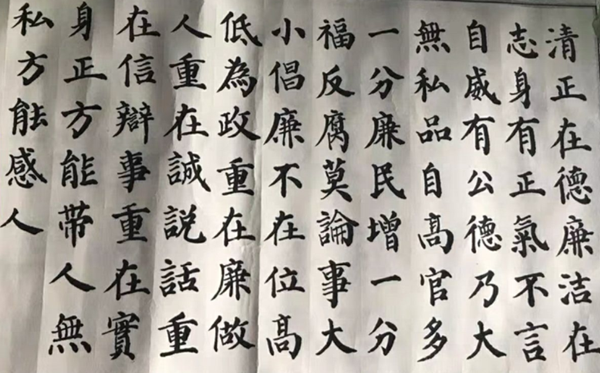 清正在德廉洁在
志身有正氣不言
自威有公德乃大
無私品自高官多
一分廉民增一分
福反腐莫論事大
小倡廉不在位高
低為政重在廉做
人重在誠説話重
在信辯事重在實
身正方能帶人無
私方能感人